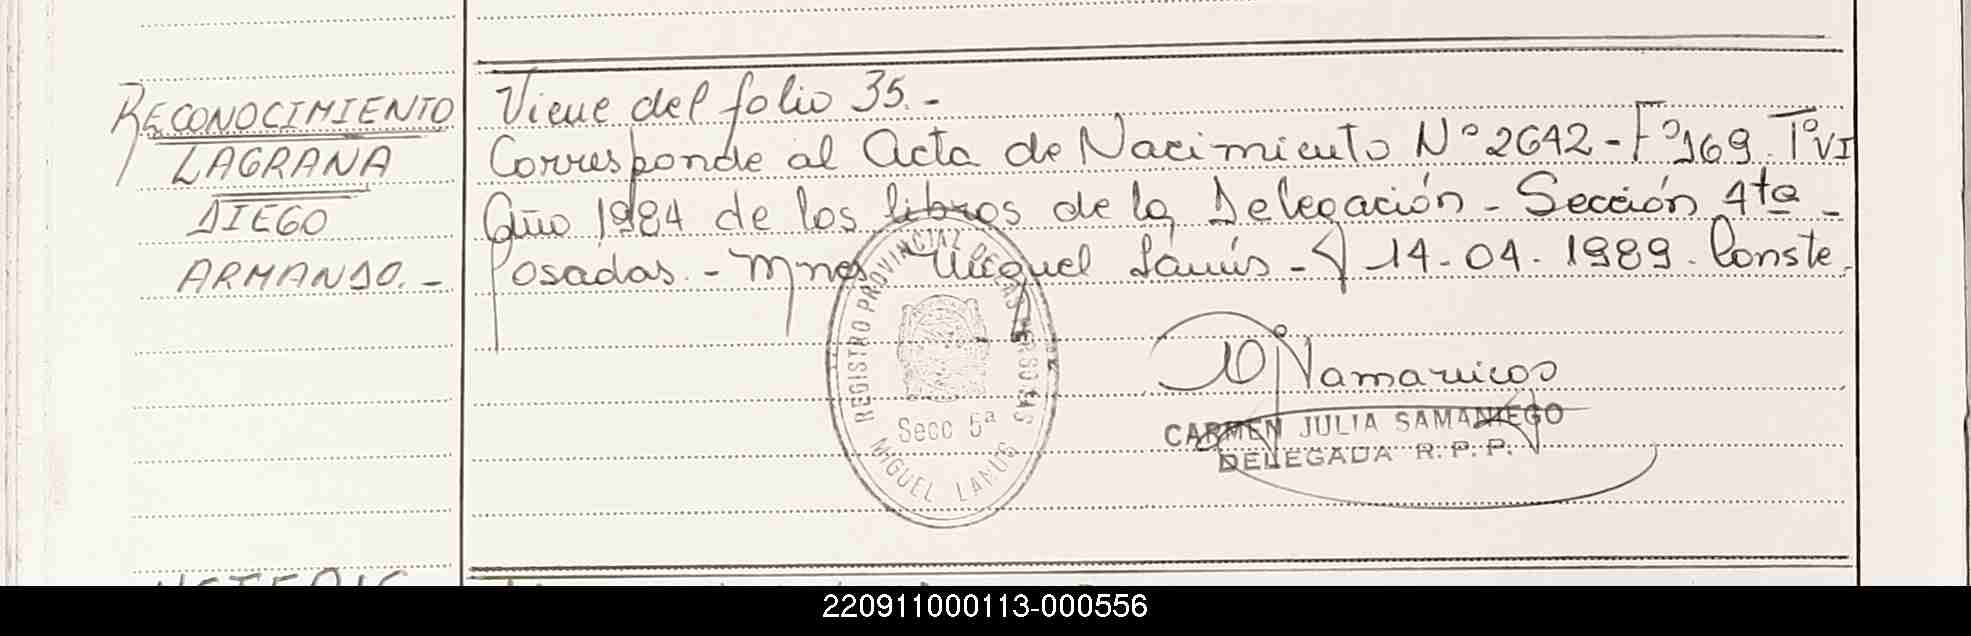 RECONOCIMIENTO
LAGRAÑA
DIEGO
ARMANDO.-
Viene del folio 35.-
Corresponde al Acta de Nacimiento Nº 2642 - Fº 169. Tº VI
Año 1984 de los libros de la Delegación - Sección 4ta -
Posadas. - Mnes Miguel Lanús - 14-04-1989. Conste.
REGISTRO PROVINCIAL DE LAS PERSONAS
Secc 5ª
MIGUEL LANUS
CARMEN JULIA SAMANIEGO
DELEGADA R.P.P.
220911000113-000556